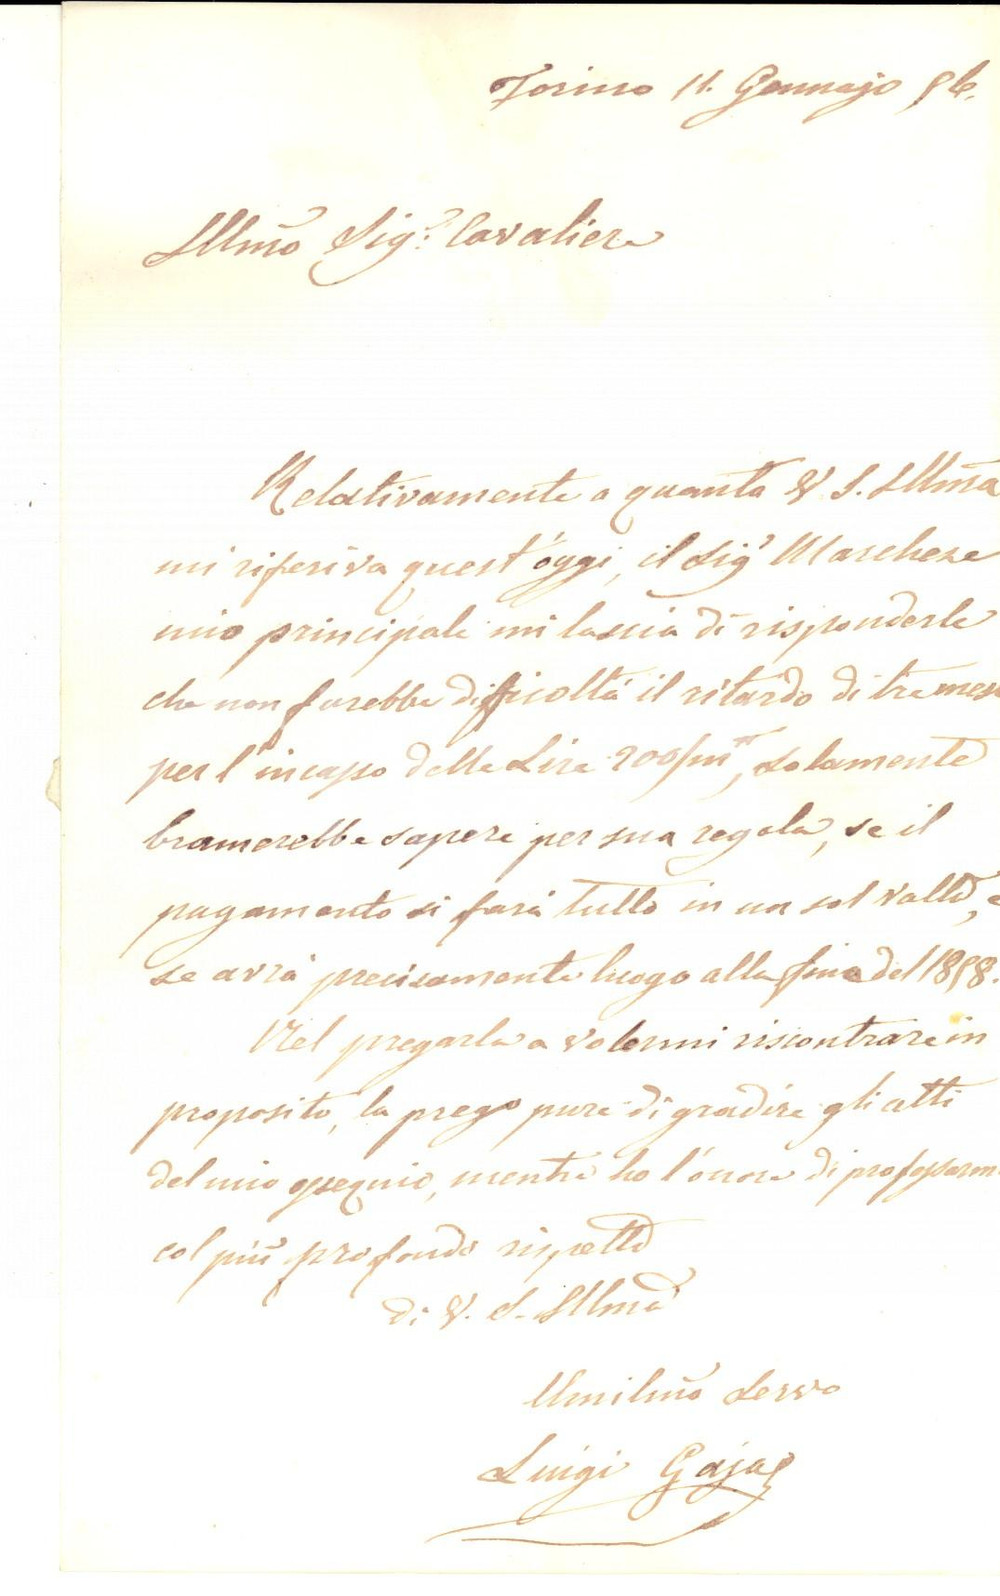 Torino 11. Gennajo 56.
Illmo Sigr. Cavaliere
Relativamente a quanto V. S. Illma
mi riferiva quest'oggi, il Sigr Marchese
mio principale mi lascia di risponderle
che non farebbe difficoltà il ritardo di tre mesi
per l'incasso delle Lire 200/m, solamente
bramerebbe sapere per sua regola, se il
pagamento si farà tutto in un sol volto, e
se avrà precisamente luogo alla fine del 1858.
Nel pregarla a volermi riscontrare in
proposito, la prego pure di gradire gli atti
del mio ossequio, mentre ho l'onore di professarmi
col più profondo rispetto
di V. S. Illma
Umilmo Servo
Luigi Gaja